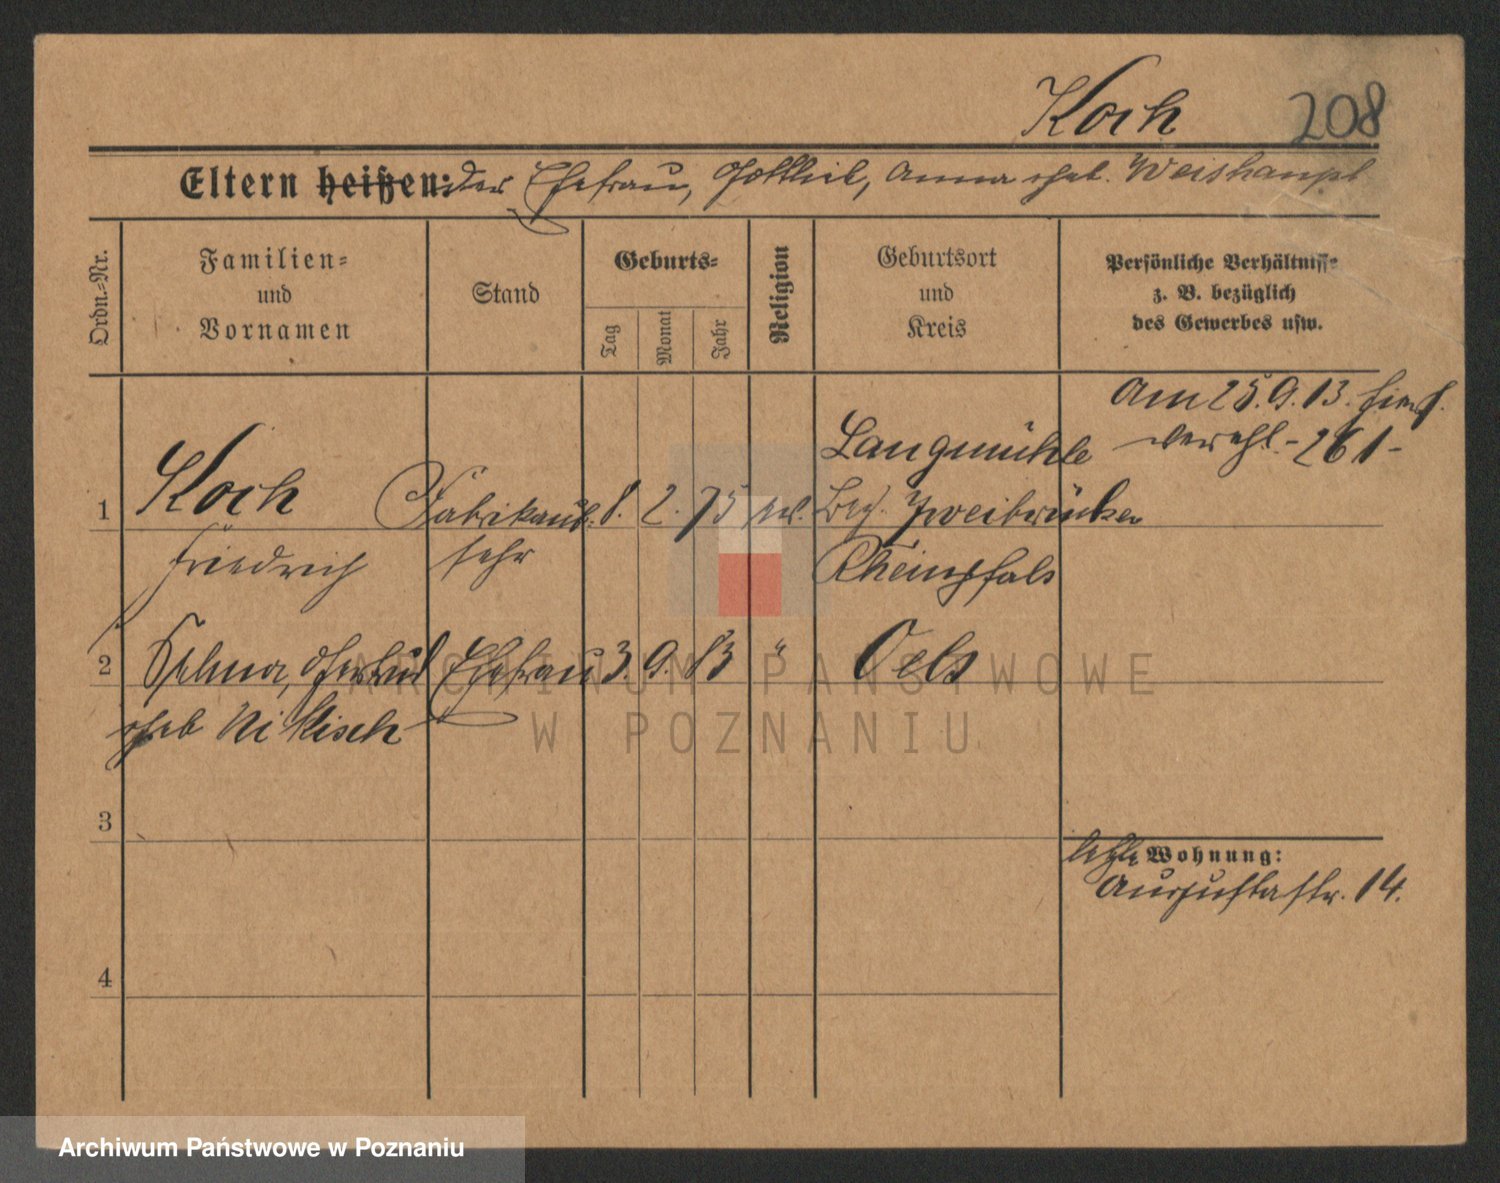 Koch 208
Eltern heißen: der Ehefrau, Gottlieb, Anna geb. Weishaupt
Ordn.=Nr.
Familien=
und
Vornamen
Stand
Geburts=
Tag
Monat
Jahr
Religion
Geburtsort
und
Kreis
Persönliche Verhältnisse
z. B. bezüglich
des Gewerbes usw.
am 25.9.13. hier
verehl. - 261 -
1 Koch Fabrikauf= 8. 2. 75 ev. Langmühle
Bez. Zweibrücken
Friedrich seher Rheinpfalz
2 Selma, Gertrud Ehefrau 3. 9. 83 " Oels
geb Nikisch
3
4
letzte Wohnung:
Augustastr. 14.
ARCHIWUM PAŃSTWOWE
W POZNANIU
Archiwum Państwowe w Poznaniu